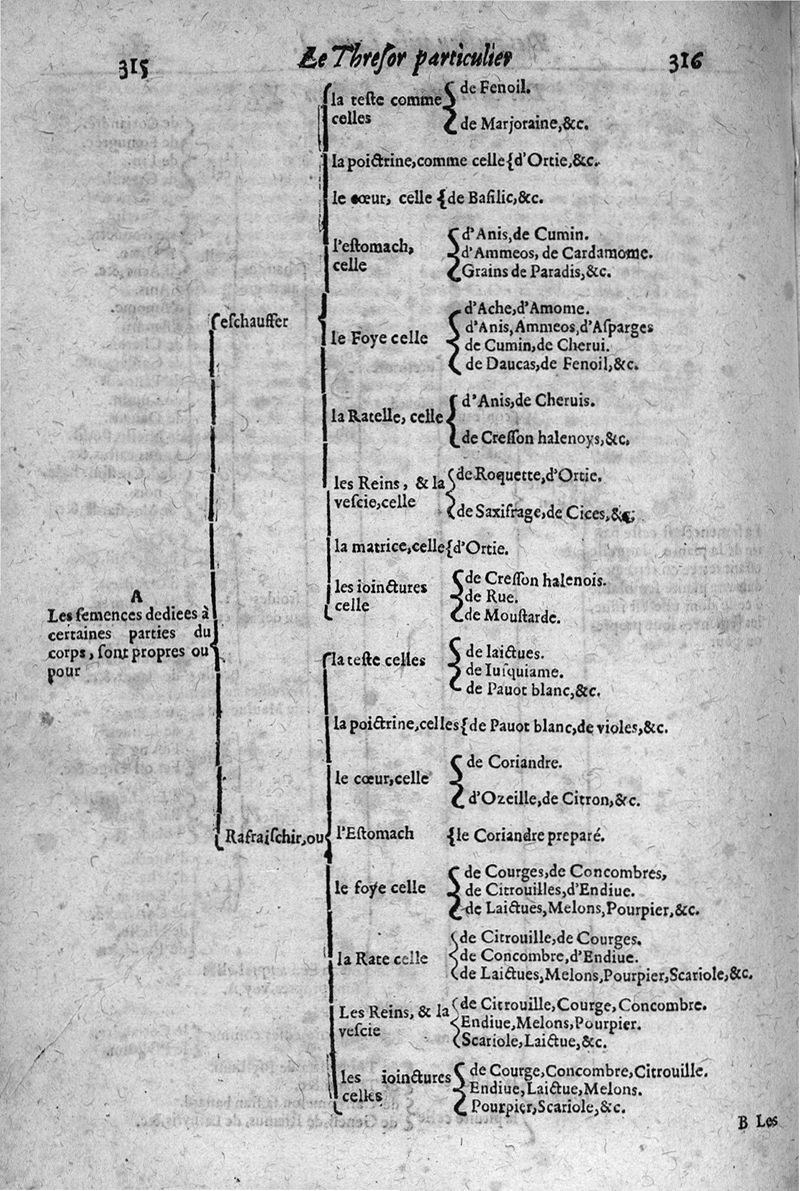 315 Le Threſor particulier 316
la teſte comme celles
de Fenoil.
de Marjoraine,&c.
la poictrine,comme celle {d'Ortie,&c.
le cœur, celle {de Baſilic,&c.
l'eſtomach, celle
d'Anis,de Cumin.
d'Ammeos, de Cardamome.
Grains de Paradis,&c.
eſchauffer
le Foye celle
d'Ache,d'Amome.
d'Anis,Ammeos,d'Aſparges
de Cumin,de Cherui.
de Daucas,de Fenoil,&c.
la Ratelle, celle
d'Anis,de Cheruis.
de Creſſon halenoys,&c.
les Reins, & la veſcie,celle
de Roquette,d'Ortie.
de Saxifrage,de Cices,&c;
la matrice,celle{d'Ortie.
les ioinctures celle
de Creſſon halenois.
de Rue.
de Mouſtarde.
A
Les ſemences dediees à
certaines parties du
corps, ſont propres ou
pour
la teſte celles
de laictues.
de Iuſquiame.
de Pauot blanc,&c.
la poictrine,celles{de Pauot blanc,de violes,&c.
le cœur,celle
de Coriandre.
d'Ozeille,de Citron,&c.
Rafraiſchir,ou
l'Eſtomach {le Coriandre preparé.
le foye celle
de Courges,de Concombres,
de Citrouilles,d'Endiue.
de Laictues,Melons,Pourpier,&c.
la Rate celle
de Citrouille,de Courges.
de Concombre,d'Endiue.
de Laictues,Melons,Pourpier,Scariole,&c.
Les Reins, & la veſcie
de Citrouille,Courge,Concombre.
Endiue,Melons,Pourpier.
Scariole,Laictue,&c.
les ioinctures celles
de Courge,Concombre,Citrouille.
Endiue,Laictue,Melons.
Pourpier,Scariole,&c.
B Les